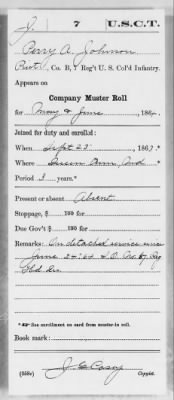 J. 7 U.S.C.T.
Perry A. Johnson
Pvt., Co. B, 7 Reg't U. S. Col'd Infantry.
Appears on
Company Muster Roll
for May & June, 1864.
Joined for duty and enrolled:
When Sept 23, 1863.*
Where Queen Ann, Md
Period 3 years.*
Present or absent Absent
Stoppage, $ 100 for
Due Gov't $ 100 for
Remarks: On detached service since
June 24 '64 S.O. No. 87 Reg
Hd Qrs.
* See enrollment on card from muster-in roll.
Book mark:
(358c) J. C. Casey Copyist.